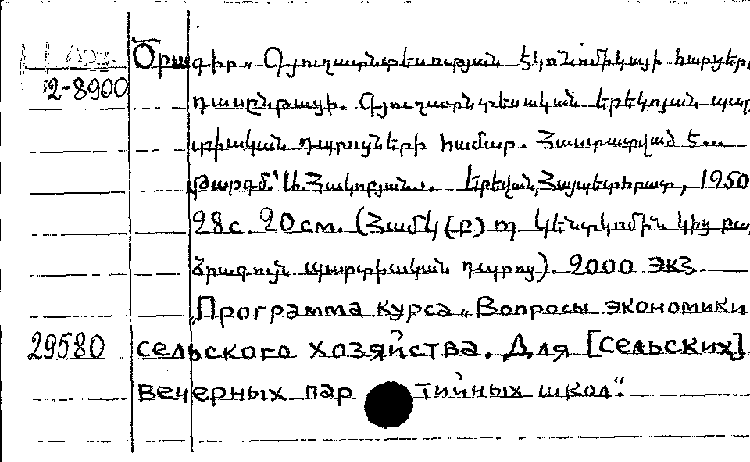 2-8900
Ծրագիր „Գյուղատնտեսության էկոնոմիկայի հարցեր
դասընթացի. Գյուղատնտեսական երեկոյան պար
տիական դպրոցների համար. Հաստատված է...
Թարգմ.՝ Ա. Հակոբյան.. Երևան, Հայպետհրատ, 1950
28с. 20см. (Համկ(բ)պ Կենտկոմին կից
ձրագույն պարտիական դպրոց). 2000 экз
„Программа курса „Вопросы экономики
29580 сельского хозяйства. Для [сельских]
вечерных партийных школ".